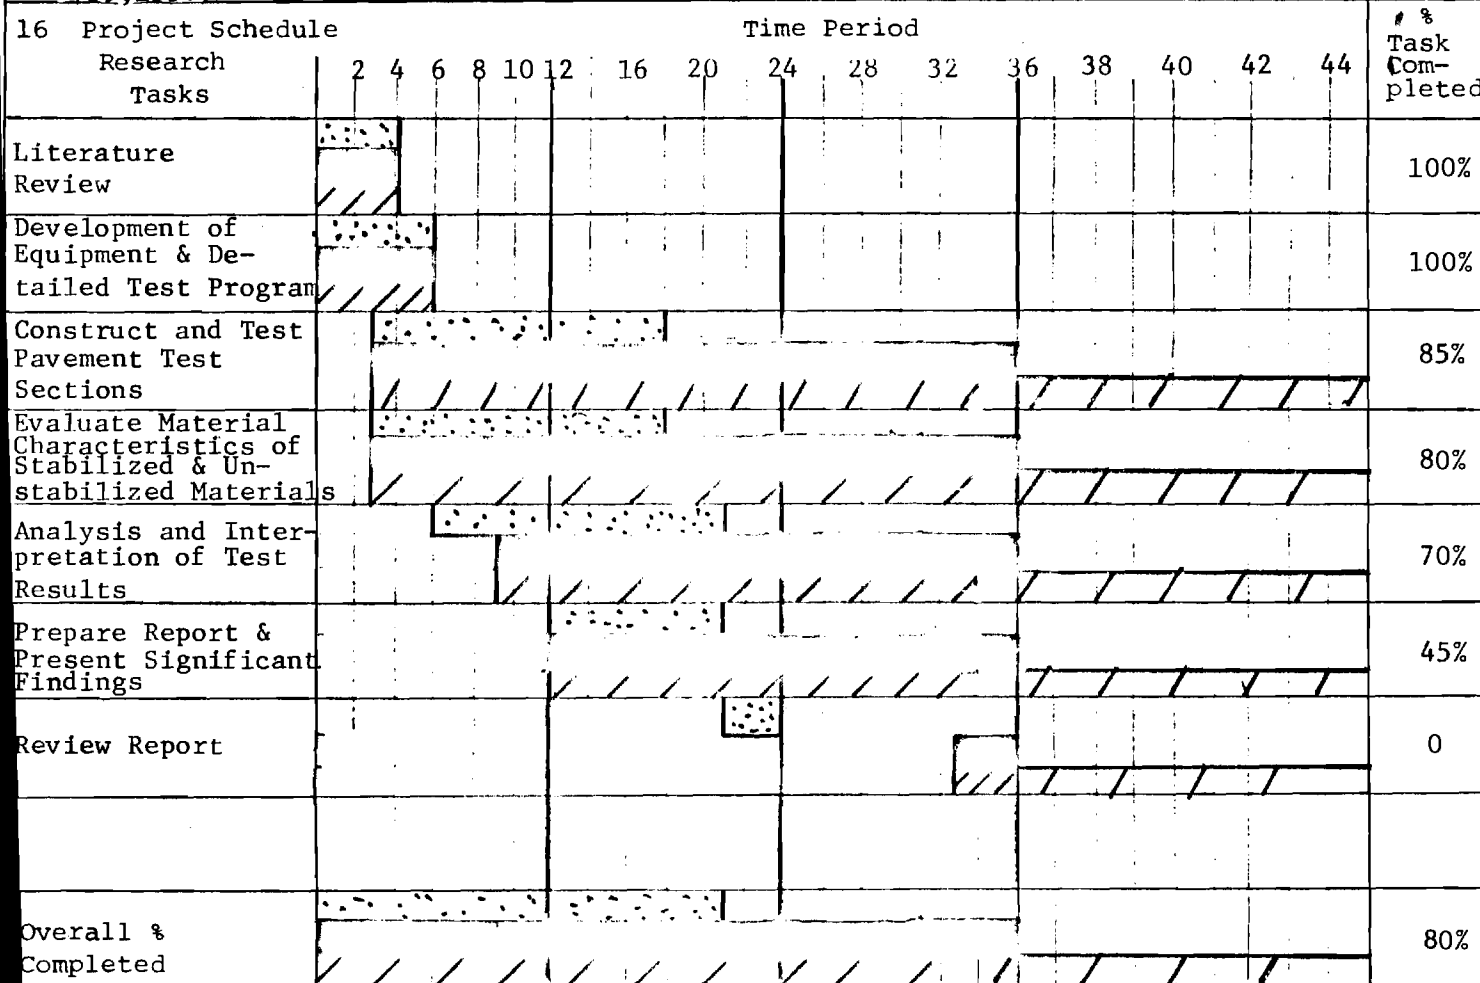 16 Project Schedule
Research
Tasks
Time Period
2 4 6 8 10 12 16 20 24 28 32 36 38 40 42 44
%
Task
Com-
pleted
Literature
Review
100%
Development of
Equipment & De-
tailed Test Program
100%
Construct and Test
Pavement Test
Sections
85%
Evaluate Material
Characteristics of
Stabilized & Un-
stabilized Materials
80%
Analysis and Inter-
pretation of Test
Results
70%
Prepare Report &
Present Significant
Findings
45%
Review Report
0
Overall %
Completed
80%